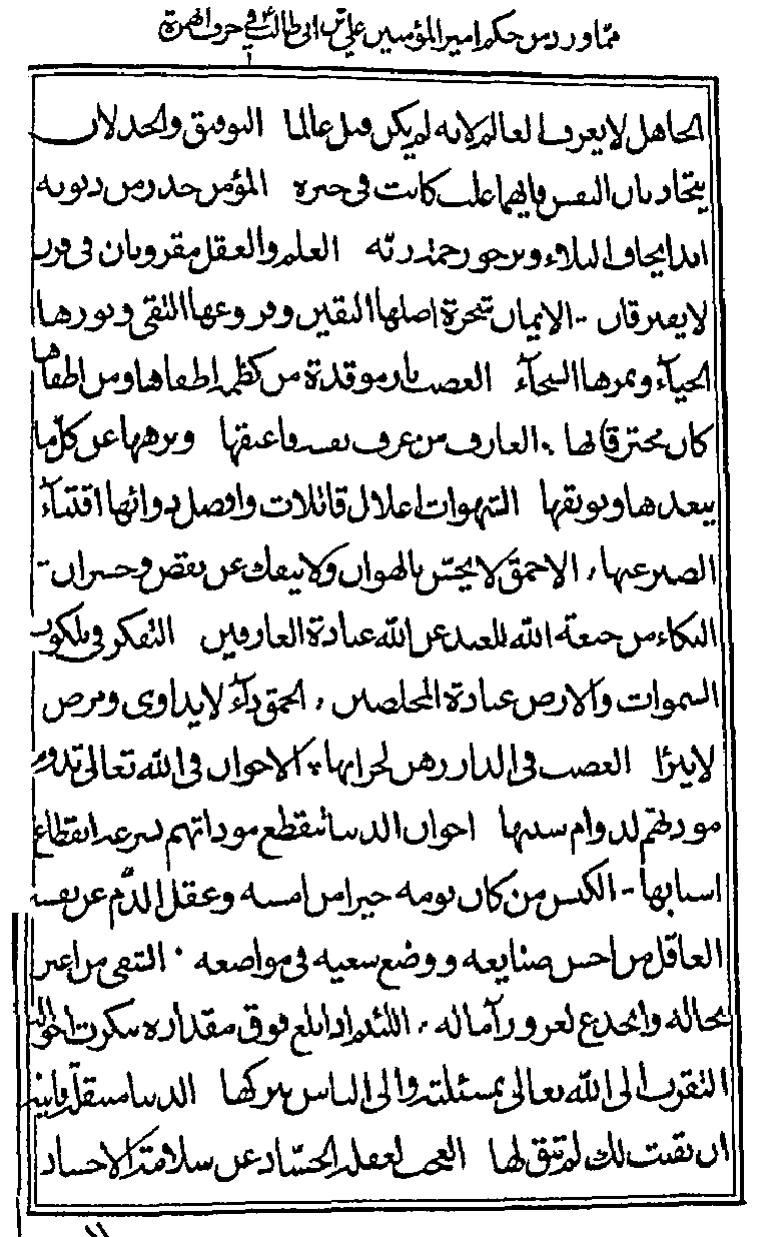 مما ورد من حكم امير المؤمنين علي بن ابي طالب في حرف الهمزة
الجاهل لا يعرف العالم لانه لم يكن قبل عالما التوفيق والخذلان
يتجاذبان النفس فايهما غلب كانت في حيزه المؤمن حذر من ذنوبه
ابدا يخاف البلاء ويرجو رحمة ربه العلم والعقل مقرونان في قرن
لا يفترقان الايمان شجرة اصلها اليقين وفروعها التقى ونورها
الحياء وثمرها السخآء الغضب نار موقدة من كظمه اطفاها ومن اطلقها
كان محترقا بها العارف من عرف نفسه فاعتقها ونزهها عن كل ما
يبعدها ويوبقها الشهوات اعلال قاتلات وافضل دوائها اقتناء
الصبر عنها الاحمق لا يحسّ بالهوان ولا ينفك عن نقص وخسران
البكاء من خيفة الله للبعد عن الله عبادة العارفين التفكر في ملكوت
السموات والارض عبادة المخلصين الحمق داء لا يداوى ومرض
لا يبرا الغصب في الدار رهن لخرابها الاخوان في الله تعالى تدوم
مودتهم لدوام سببها اخوان الدنيا تنقطع موداتهم لسرعة انقطاع
اسبابها الكيس من كان يومه خيرا من امسه وعقل الذم عن نفسه
العاقل من احسن صنايعه ووضع سعيه في مواضعه الشقي من اغتر
بحاله وانخدع لغرور آماله اللئيم اذا بلغ فوق مقداره تنكرت احواله
التقرب الى الله تعالى بمسئلته والى الناس بتركها الدنيا منتقلة فانية
ان بقيت لك لم تبق لها العجب لغفلة الحسّاد عن سلامة الاجساد